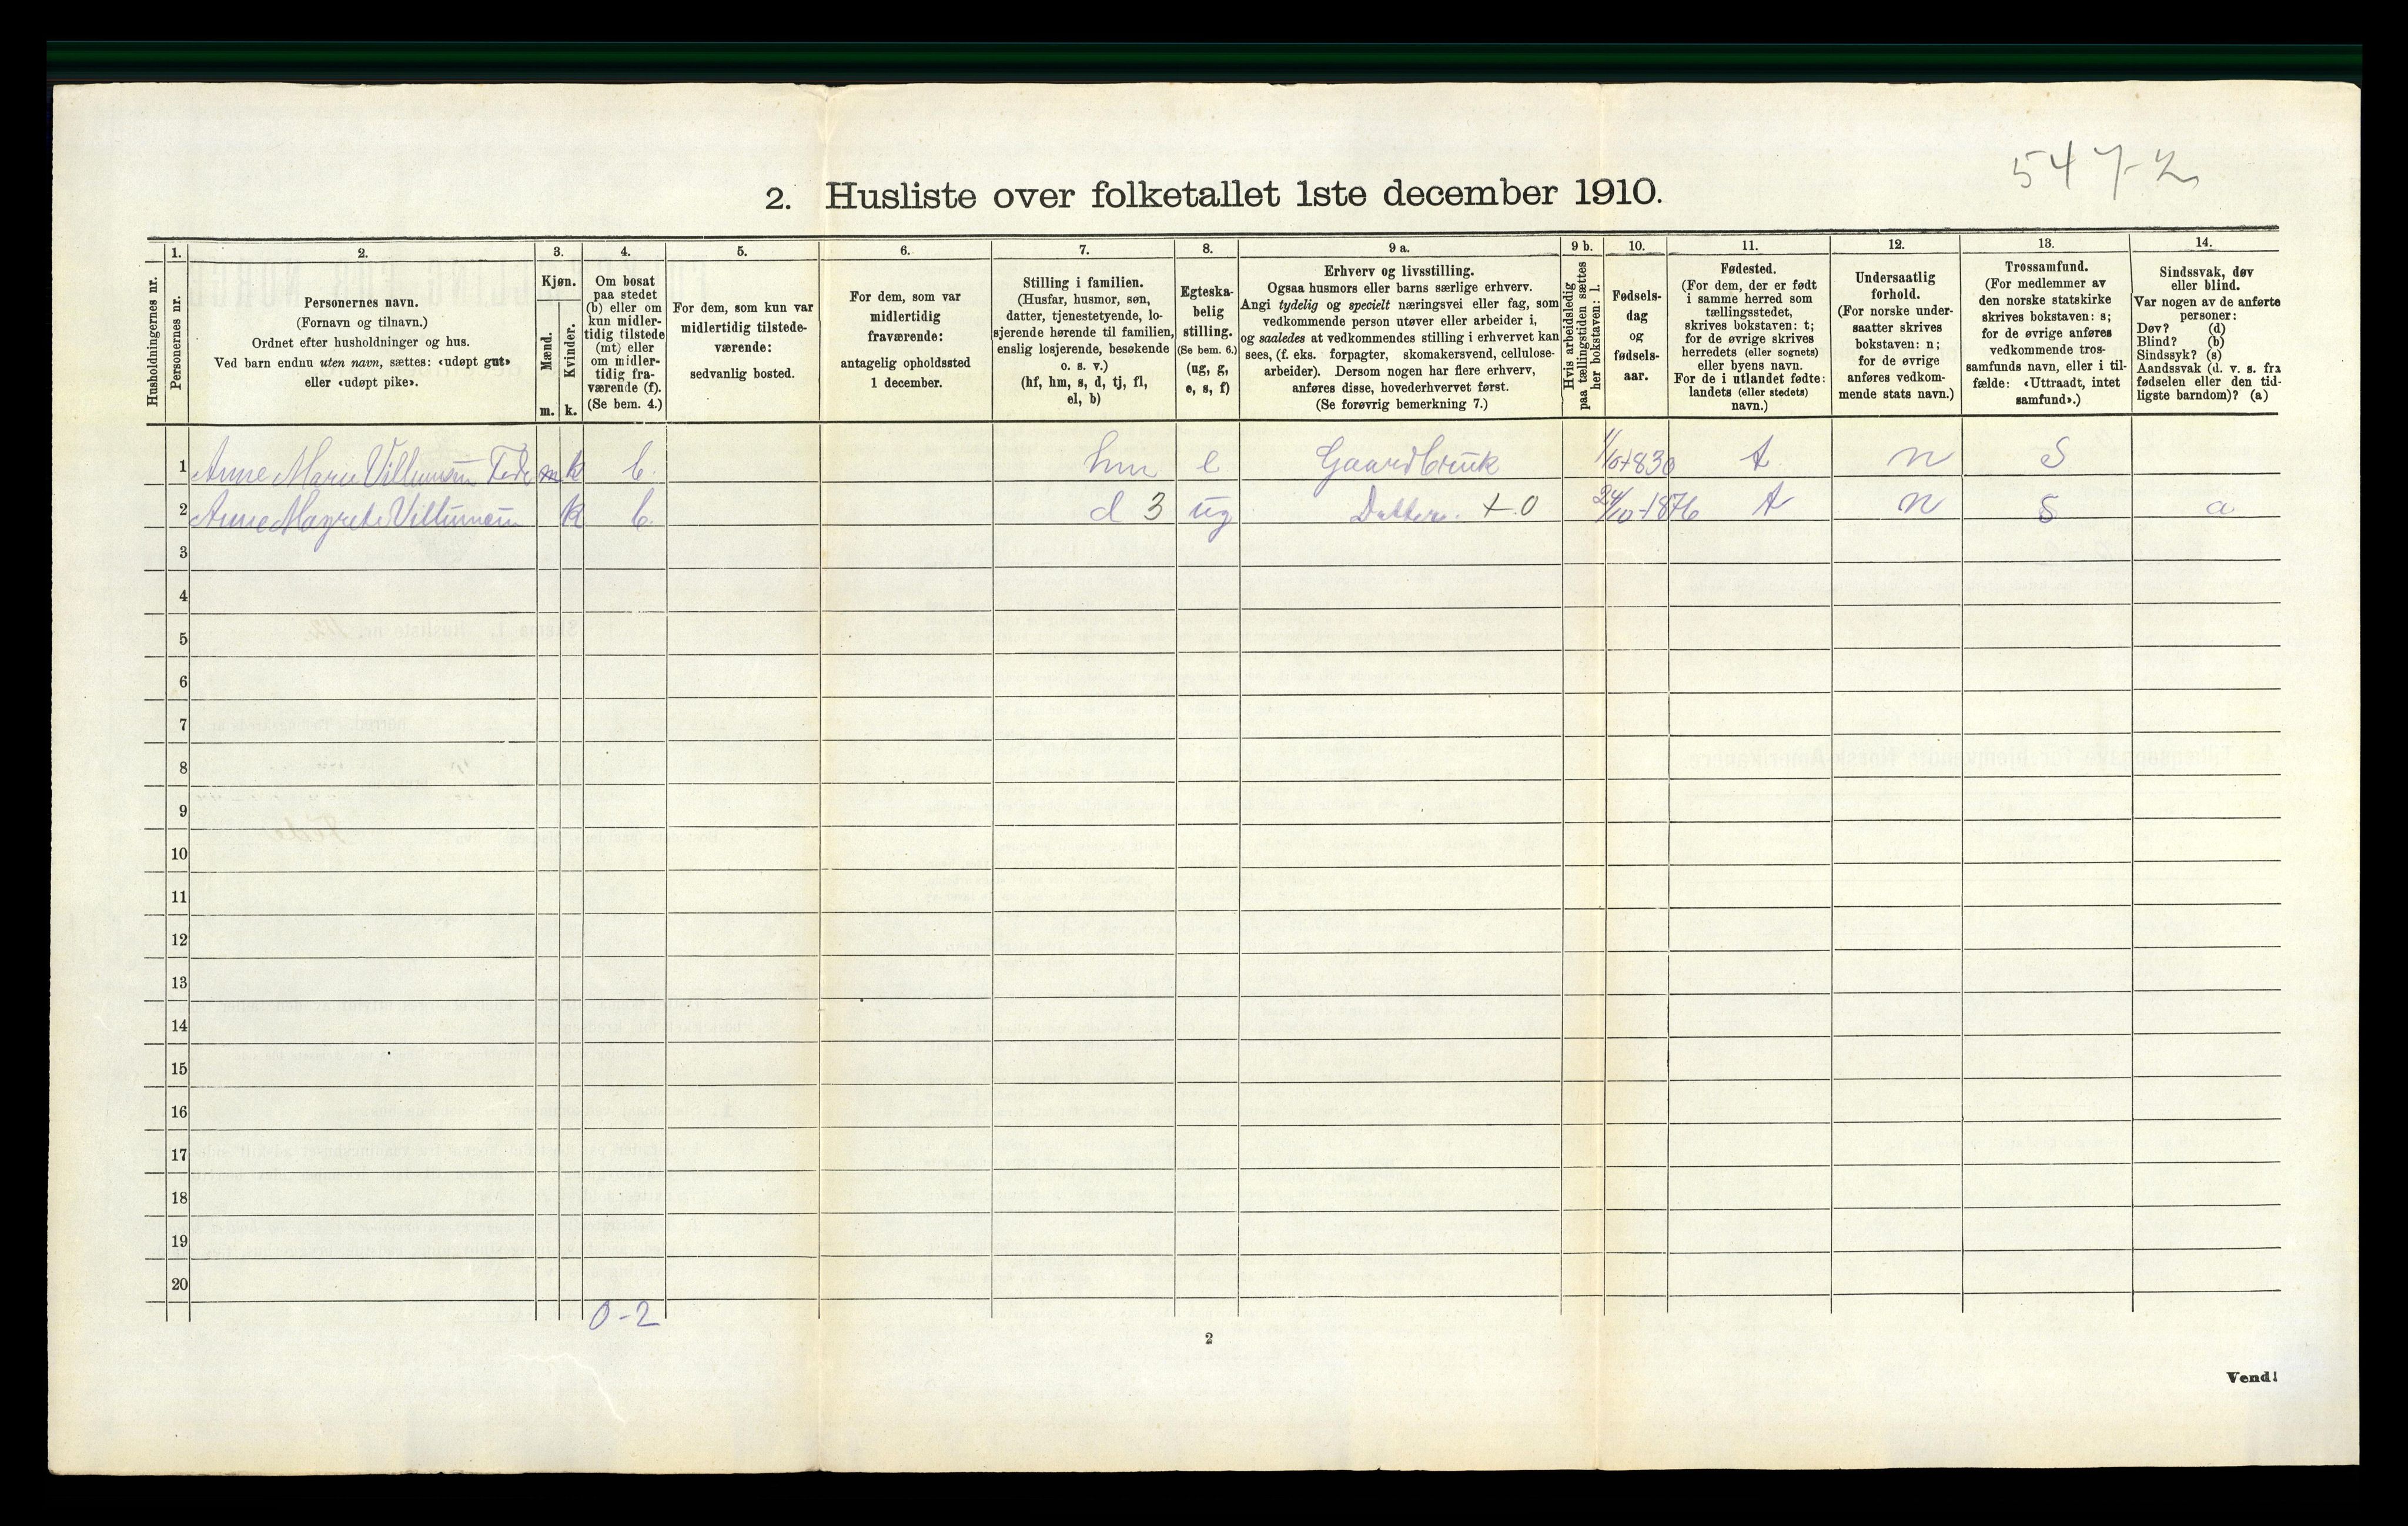 547-2
2. Husliste over folketallet 1ste december 1910.
Husholdningernes nr.
1.
Personernes nr.
2.
Personernes navn.
(Fornavn og tilnavn.)
Ordnet efter husholdninger og hus.
Ved barn endnu uten navn, sættes: «udøpt gut»
eller «udøpt pike».
3.
Kjøn.
Mænd.
Kvinder.
m. k.
4.
Om bosat
paa stedet
(b) eller om
kun midler-
tidig tilstede
(mt) eller
om midler-
tidig fra-
værende (f).
(Se bem. 4.)
5.
For dem, som kun var
midlertidig tilstede-
værende:
sedvanlig bosted.
6.
For dem, som var
midlertidig
fraværende:
antagelig opholdssted
1 december.
7.
Stilling i familien.
(Husfar, husmor, søn,
datter, tjenestetyende, lo-
sjerende hørende til familien,
enslig losjerende, besøkende
o. s. v.)
(hf, hm, s, d, tj, fl,
el, b)
8.
Egteska-
belig
stilling.
(Se bem. 6.)
(ug, g,
e, s, f)
9 a.
Erhverv og livsstilling.
Ogsaa husmors eller barns særlige erhverv.
Angi tydelig og specielt næringsvei eller fag, som
vedkommende person utøver eller arbeider i,
og saaledes at vedkommendes stilling i erhvervet kan
sees, (f. eks. forpagter, skomakersvend, cellulose-
arbeider). Dersom nogen har flere erhverv,
anføres disse, hovederhvervet først.
(Se forøvrig bemerkning 7.)
9 b.
Hvis arbeidsledig
paa tællingstiden sættes
her bokstaven: l.
10.
Fødsels-
dag
og
fødsels-
aar.
11.
Fødested.
(For dem, der er født
i samme herred som
tællingsstedet,
skrives bokstaven: t;
for de øvrige skrives
herredets (eller sognets)
eller byens navn.
For de i utlandet fødte:
landets (eller stedets)
navn.)
12.
Undersaatlig
forhold.
(For norske under-
saatter skrives
bokstaven: n;
for de øvrige
anføres vedkom-
mende stats navn.)
13.
Trossamfund.
(For medlemmer av
den norske statskirke
skrives bokstaven: s;
for de øvrige anføres
vedkommende tros-
samfunds navn, eller i til-
fælde: «Uttraadt, intet
samfund».)
14.
Sindssvak, døv
eller blind.
Var nogen av de anførte
personer:
Døv? (d)
Blind? (b)
Sindssyk? (s)
Aandssvak (d. v. s. fra
fødselen eller den tid-
ligste barndom)? (a)
1 Anne Marie Villumsen m k b. hm e Gaardbruk t n S
2 Anne Magrete Villumsen k b. d 3 ug Datter. +.0 24/10-1876 t n S a
3
4
5
6
7
8
9
10
11
12
13
14
15
16
17
18
19
20
0-2
2
Vend!